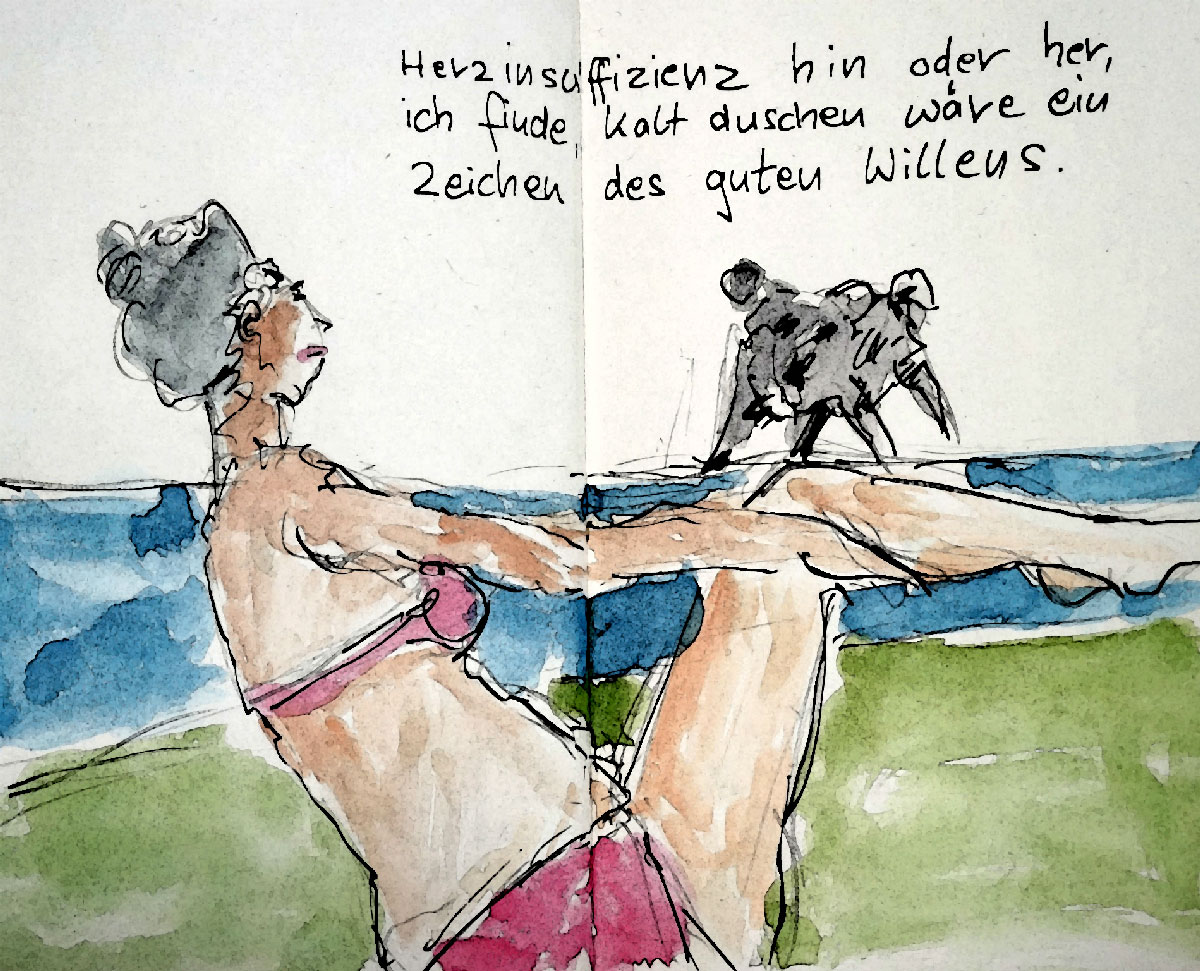 Herzinsuffizienz hin oder her,
ich finde, kalt duschen wäre ein
Zeichen des guten Willens.